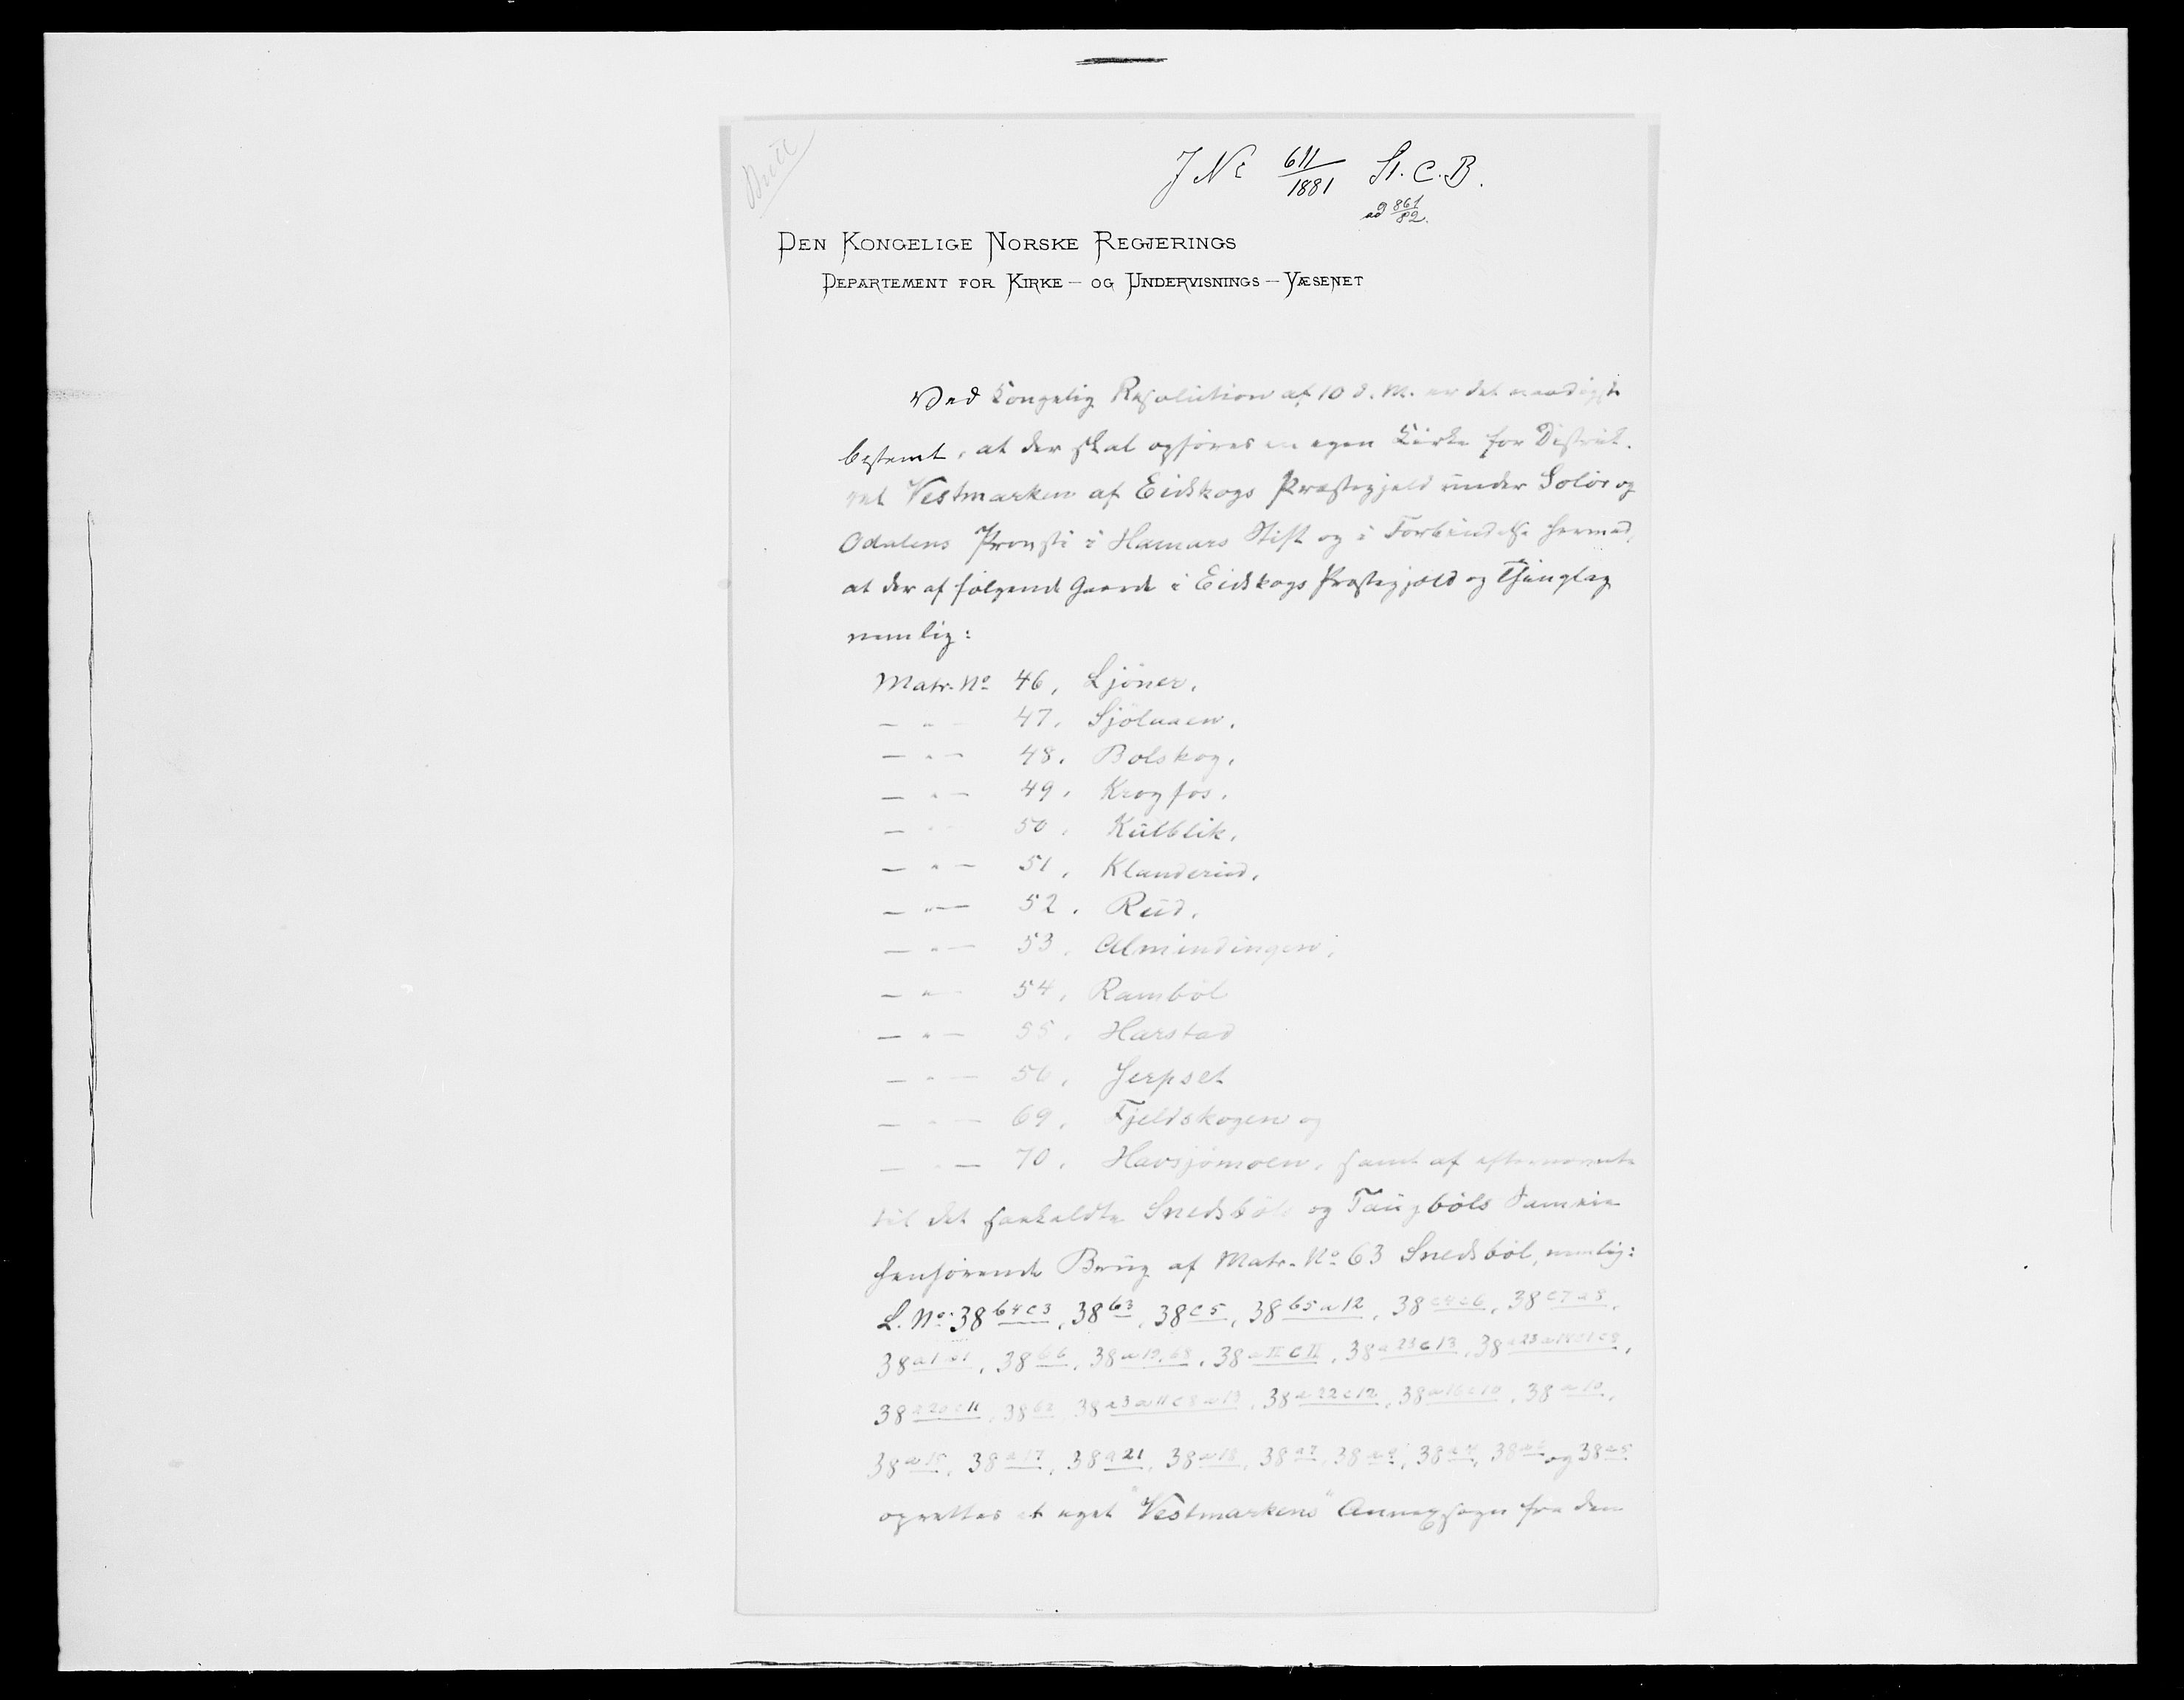 J No 611/1881 St. C. B.
ad 861/82.
DEN KONGELIGE NORSKE REGJERINGS
DEPARTEMENT FOR KIRKE- OG UNDERVISNINGS-VÆSENET
Ved Kongelig Resolution af 10 d. M. er det naadigst
bestemt, at der skal opföres en egen Kirke for Distrik-
tet Vestmarken af Eidskogs Præstegjeld under Solör og
Odalens Provsti i Hamars Stift og i Forbindelse hermed,
at der af fölgende Gaarde i Eidskogs Præstegjeld og Thinglag
nemlig:
Matr. No 46, Ljöner.
— " — 47. Sjölaaen.
— " — 48. Bolskog.
— " — 49. Krogfos.
— " — 50. Kulblik.
— " — 51. Klanderud.
— " — 52. Rud.
— " — 53. Almindingen.
— " — 54. Ramböl
— " — 55. Harstad
— " — 56. Jerpset
— " — 69. Fjeldskogen og
— " — 70. Havsjömoen, samt af efternævnte
til det saakaldte Snedsböls og Taugböls
henhörende Brug af Matr. No 63 Snedsböl, nemlig:
L. No 38 b4c3, 38 b3, 38 c5, 38 b5a12, 38 c4c6, 38 c7a8,
38 a1a1, 38 b6, 38 a19,b8, 38 aIIcII, 38 a23c13, 38
38 a20c11, 38 b2, 38 a3a11c8a13, 38 a22c12, 38 a16c10, 38 a10,
38 a15, 38 a17, 38 a21, 38 a18, 38 a7, 38 38 38 og 38 a5
oprettes et eget "Vestmarkens" Annexsogn fra den